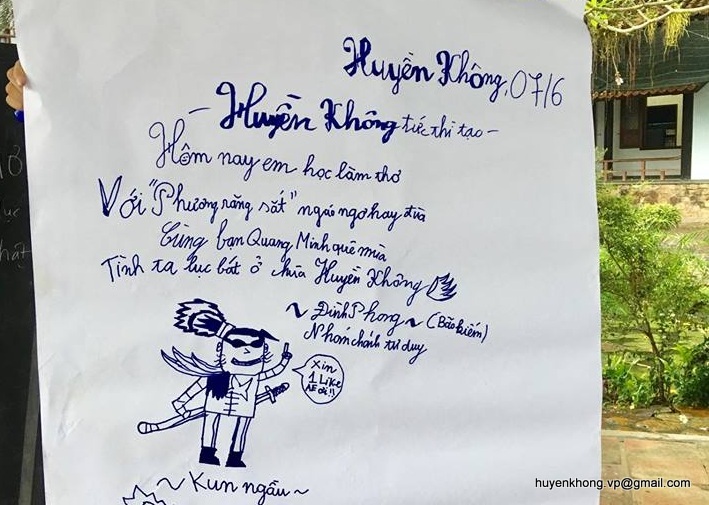 Huyền Không, 07/6
– Huyền Không tức thi tạo –
Hôm nay em học làm thơ
Với "Phương răng sắt" ngáo ngơ hay đùa
Cùng bạn Quang Minh quê mùa
Tình ta lục bát ở chùa Huyền Không
~ Đình Phong ~ (Bảo kiếm)
Nhóm chánh tư duy
Xin
1 Like
AE ơi!!
~ Kun ngầu ~
huyenkhong.vp@gmail.com